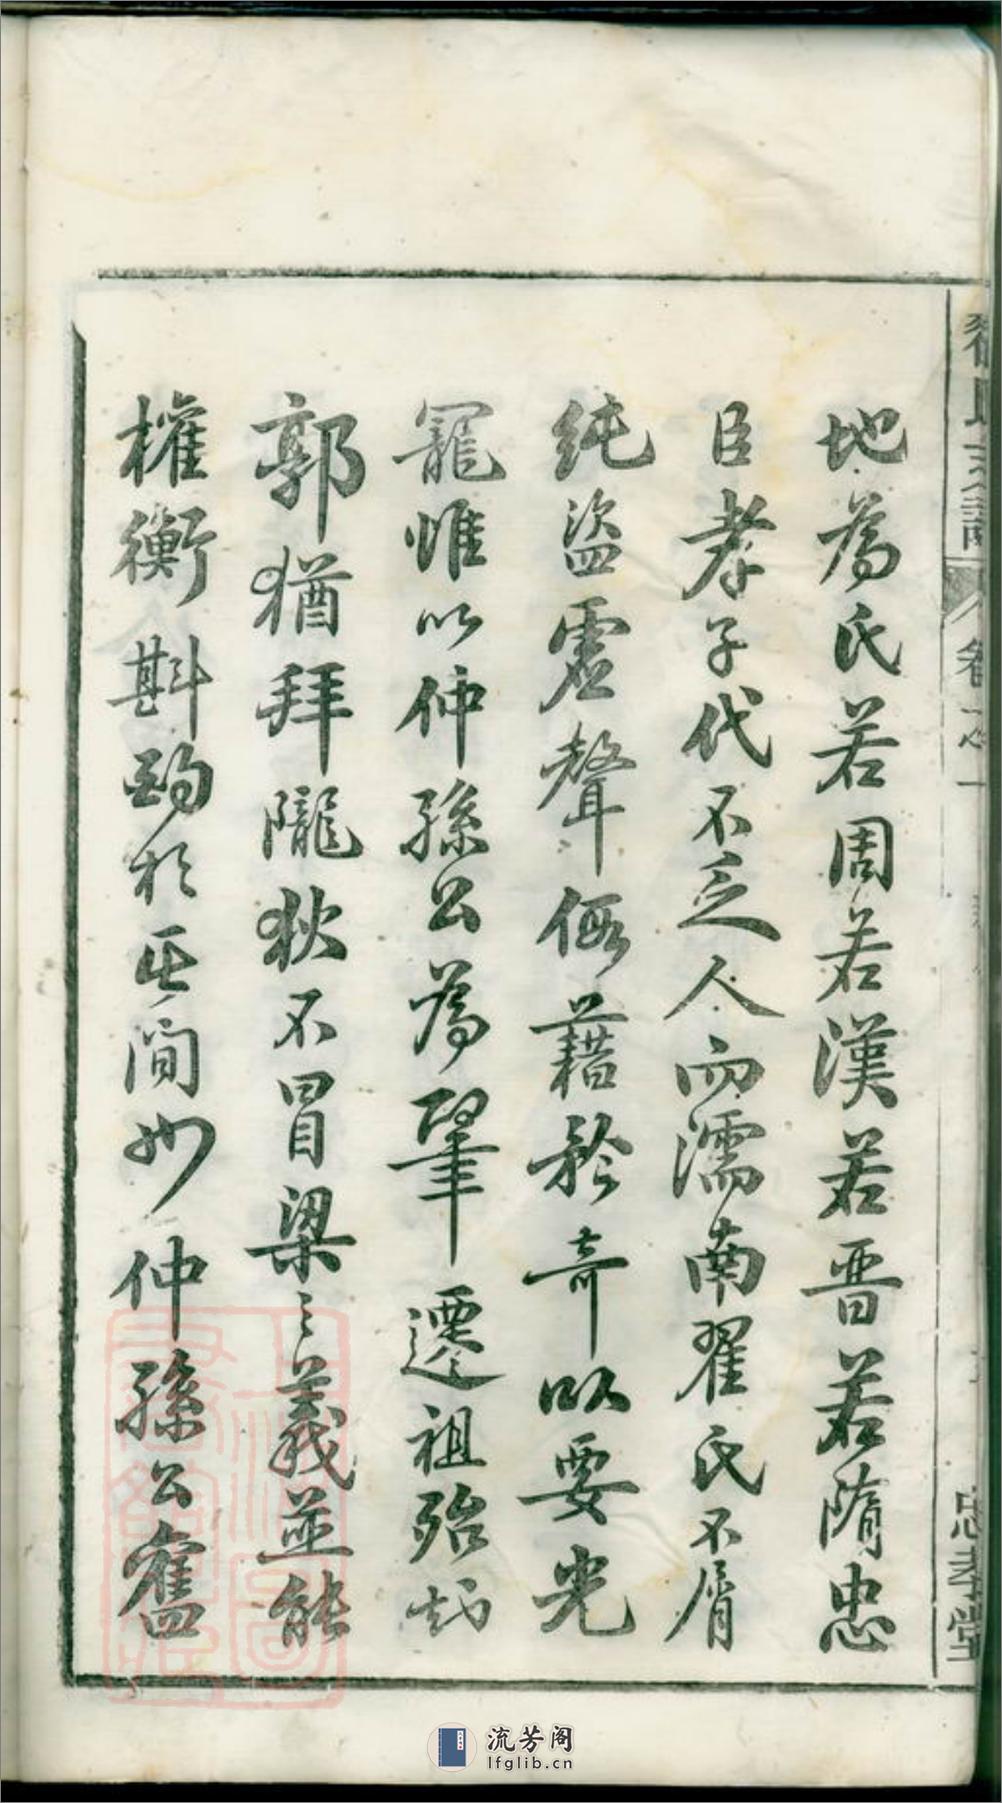 地為氏若周若漢若晋若隋忠
臣孝子代不乏人而濡南翟氏不屑
純盜虛聲假藉矜奇以要光
寵惟以仲孫公為肇遷祖殆知
郭猶拜隴狄不冒梁之義並能
權衡斟酌於其間也仲孫公舊
卷之一
忠孝堂
流芳阁
lfglib.cn